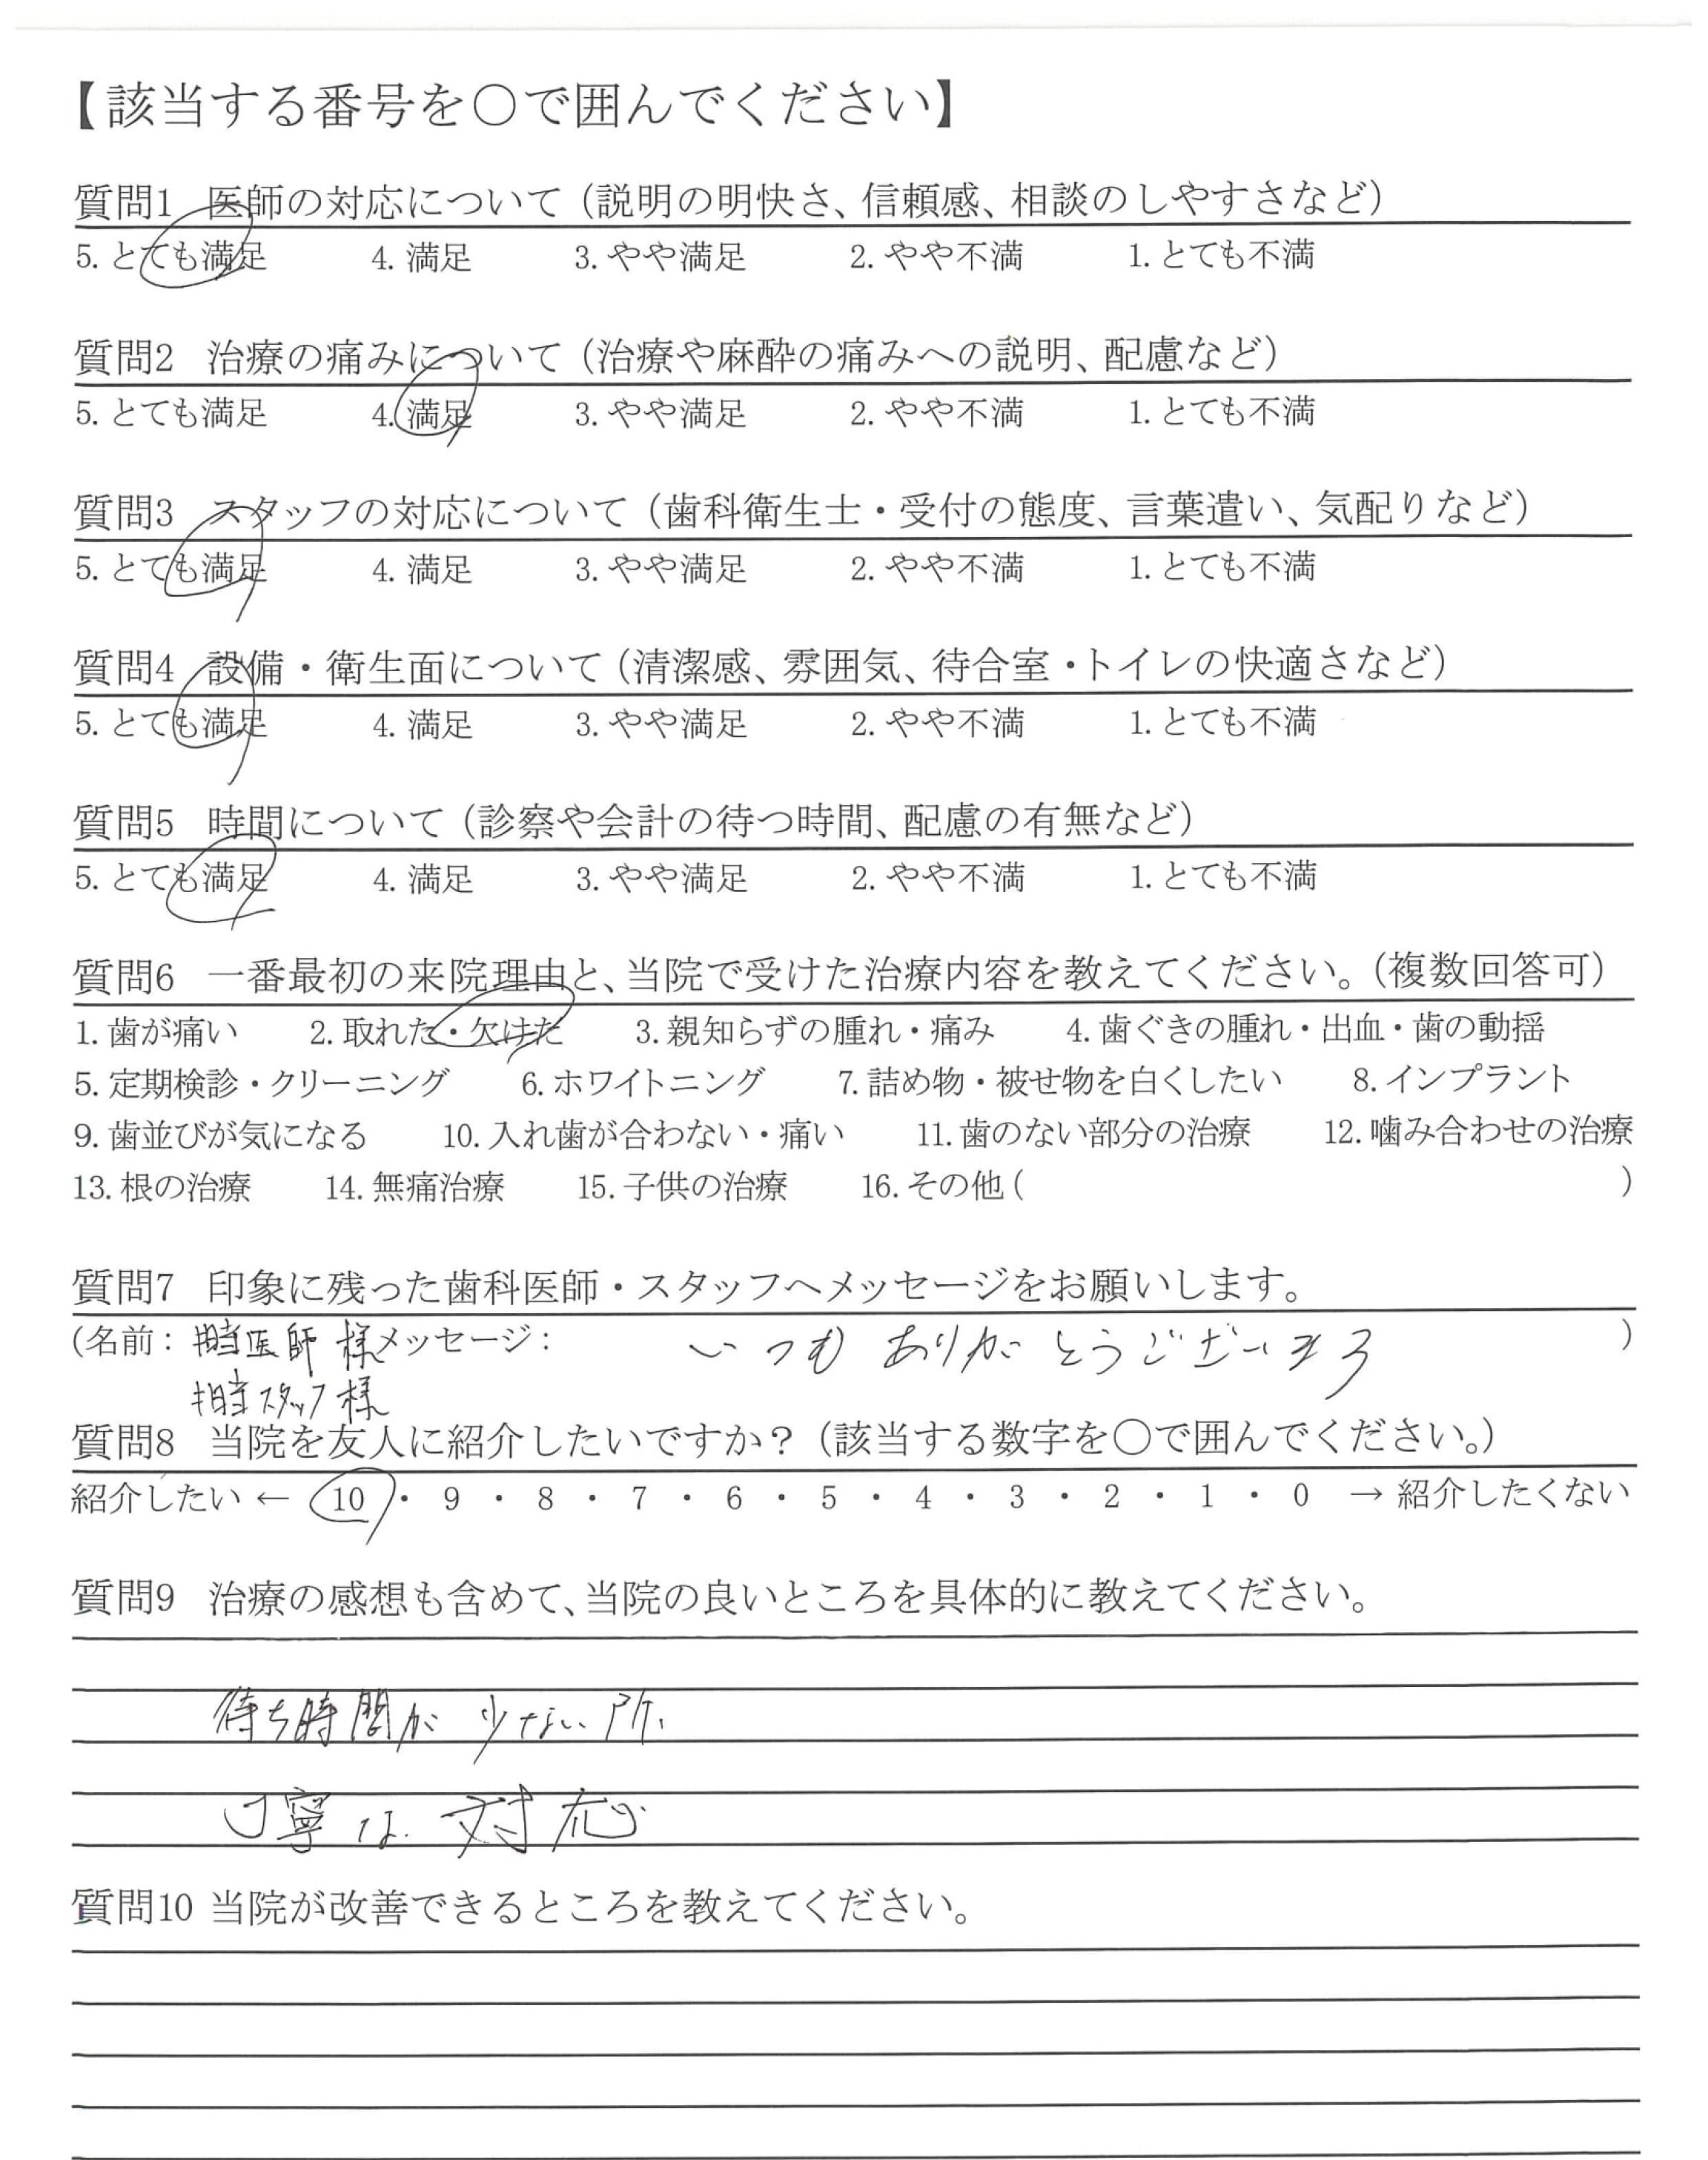 【該当する番号を〇で囲んでください】
質問1 医師の対応について（説明の明快さ、信頼感、相談のしやすさなど）
5. とても満足 4. 満足 3. やや満足 2. やや不満 1. とても不満
質問2 治療の痛みについて（治療や麻酔の痛みへの説明、配慮など）
5. とても満足 4. 満足 3. やや満足 2. やや不満 1. とても不満
質問3 スタッフの対応について（歯科衛生士・受付の態度、言葉遣い、気配りなど）
5. とても満足 4. 満足 3. やや満足 2. やや不満 1. とても不満
質問4 設備・衛生面について（清潔感、雰囲気、待合室・トイレの快適さなど）
5. とても満足 4. 満足 3. やや満足 2. やや不満 1. とても不満
質問5 時間について（診察や会計の待つ時間、配慮の有無など）
5. とても満足 4. 満足 3. やや満足 2. やや不満 1. とても不満
質問6 一番最初の来院理由と、当院で受けた治療内容を教えてください。（複数回答可）
1. 歯が痛い 2. 取れた・欠けた 3. 親知らずの腫れ・痛み 4. 歯ぐきの腫れ・出血・歯の動揺
5. 定期検診・クリーニング 6. ホワイトニング 7. 詰め物・被せ物を白くしたい 8. インプラント
9. 歯並びが気になる 10. 入れ歯が合わない・痛い 11. 歯のない部分の治療 12. 噛み合わせの治療
13. 根の治療 14. 無痛治療 15. 子供の治療 16. その他（ ）
質問7 印象に残った歯科医師・スタッフへメッセージをお願いします。
（名前：担当医師 様 メッセージ： いつも ありがとうございます ）
担当スタッフ様
質問8 当院を友人に紹介したいですか？（該当する数字を〇で囲んでください。）
紹介したい ← 10 ・ 9 ・ 8 ・ 7 ・ 6 ・ 5 ・ 4 ・ 3 ・ 2 ・ 1 ・ 0 → 紹介したくない
質問9 治療の感想も含めて、当院の良いところを具体的に教えてください。
待ち時間が 少ない所、
丁寧な 対応
質問10 当院が改善できるところを教えてください。